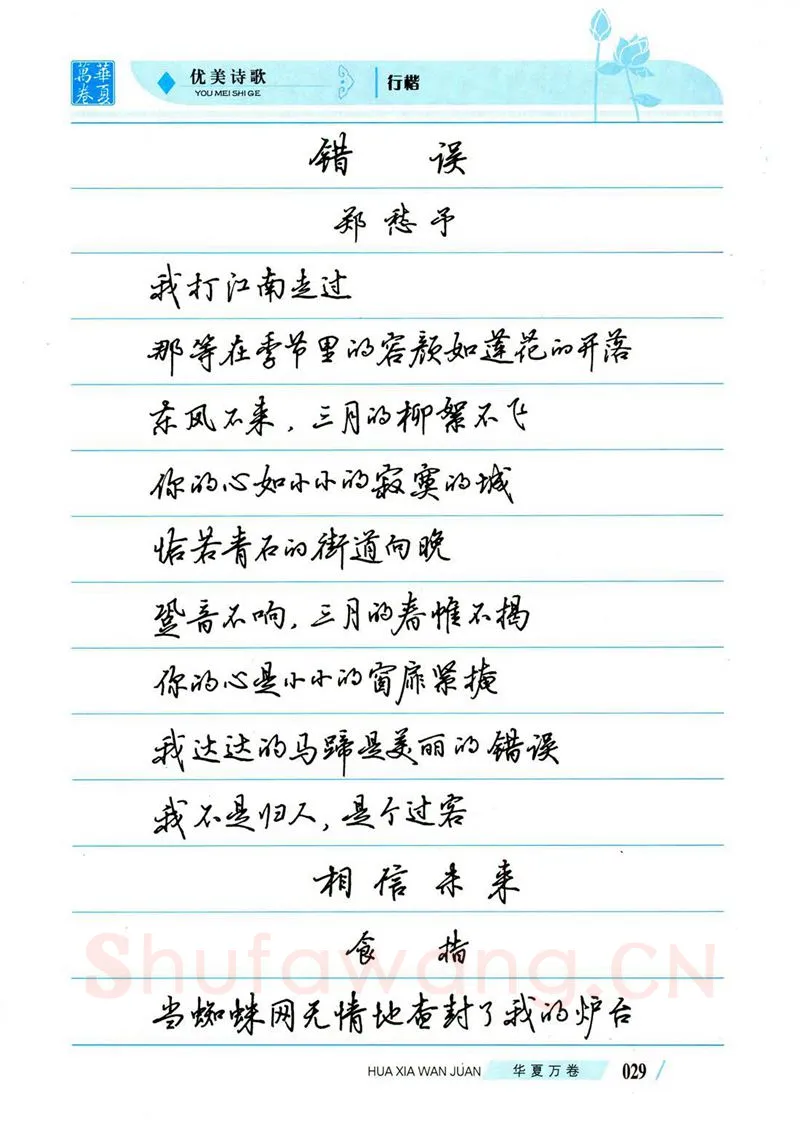 華夏萬卷
优美诗歌
YOU MEI SHI GE
行楷
错 误
郑愁予
我打江南走过
那等在季节里的容颜如莲花的开落
东风不来,三月的柳絮不飞
你的心如小小的寂寞的城
恰若青石的街道向晚
跫音不响,三月的春帷不揭
你的心是小小的窗扉紧掩
我达达的马蹄是美丽的错误
我不是归人,是个过客
相信未来
食 指
当蜘蛛网无情地查封了我的炉台
Shufawang.CN
HUA XIA WAN JUAN
华夏万卷
029